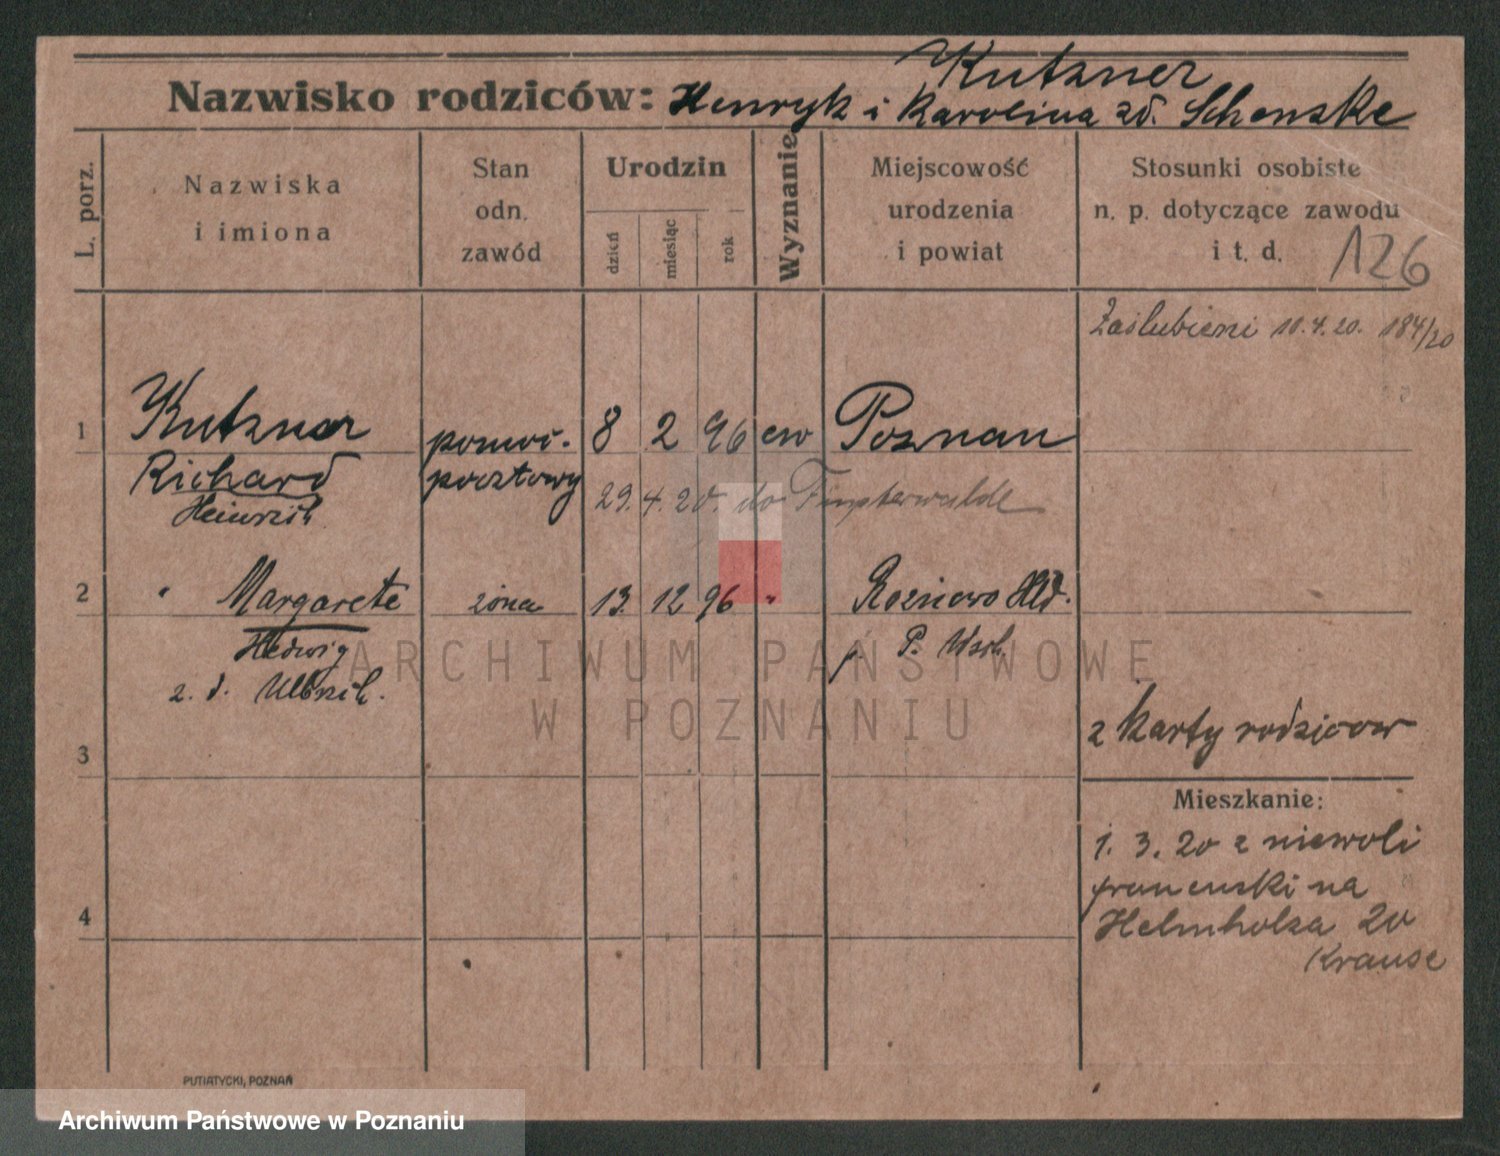 Kutzner
Nazwisko rodziców: Henryk i Karolina zd. Schenske
L. porz.
Nazwiska
i imiona
Stan
odn.
zawód
Urodzin
dzień
miesiąc
rok
Wyznanie
Miejscowość
urodzenia
i powiat
Stosunki osobiste
n. p. dotyczące zawodu
i t. d.
126
Zaślubieni 10.4.20. 184/20
1 Kutzner 8 2 96 ew Poznan
Richard pocztowy
Heinrich 29. 4. 20. do Finsterwalde
2 " Margarete żona 13. 12 96 " Roznowo Hld.
Hedwig p.
z. d. Ulbrich.
ARCHIWUM PAŃSTWOWE
W POZNANIU
z karty rodzicow
3
Mieszkanie:
1. 3. 20 z niewoli
francuski na
4 Helmholza 20
Krause
PUTIATYCKI, POZNAŃ
Archiwum Państwowe w Poznaniu